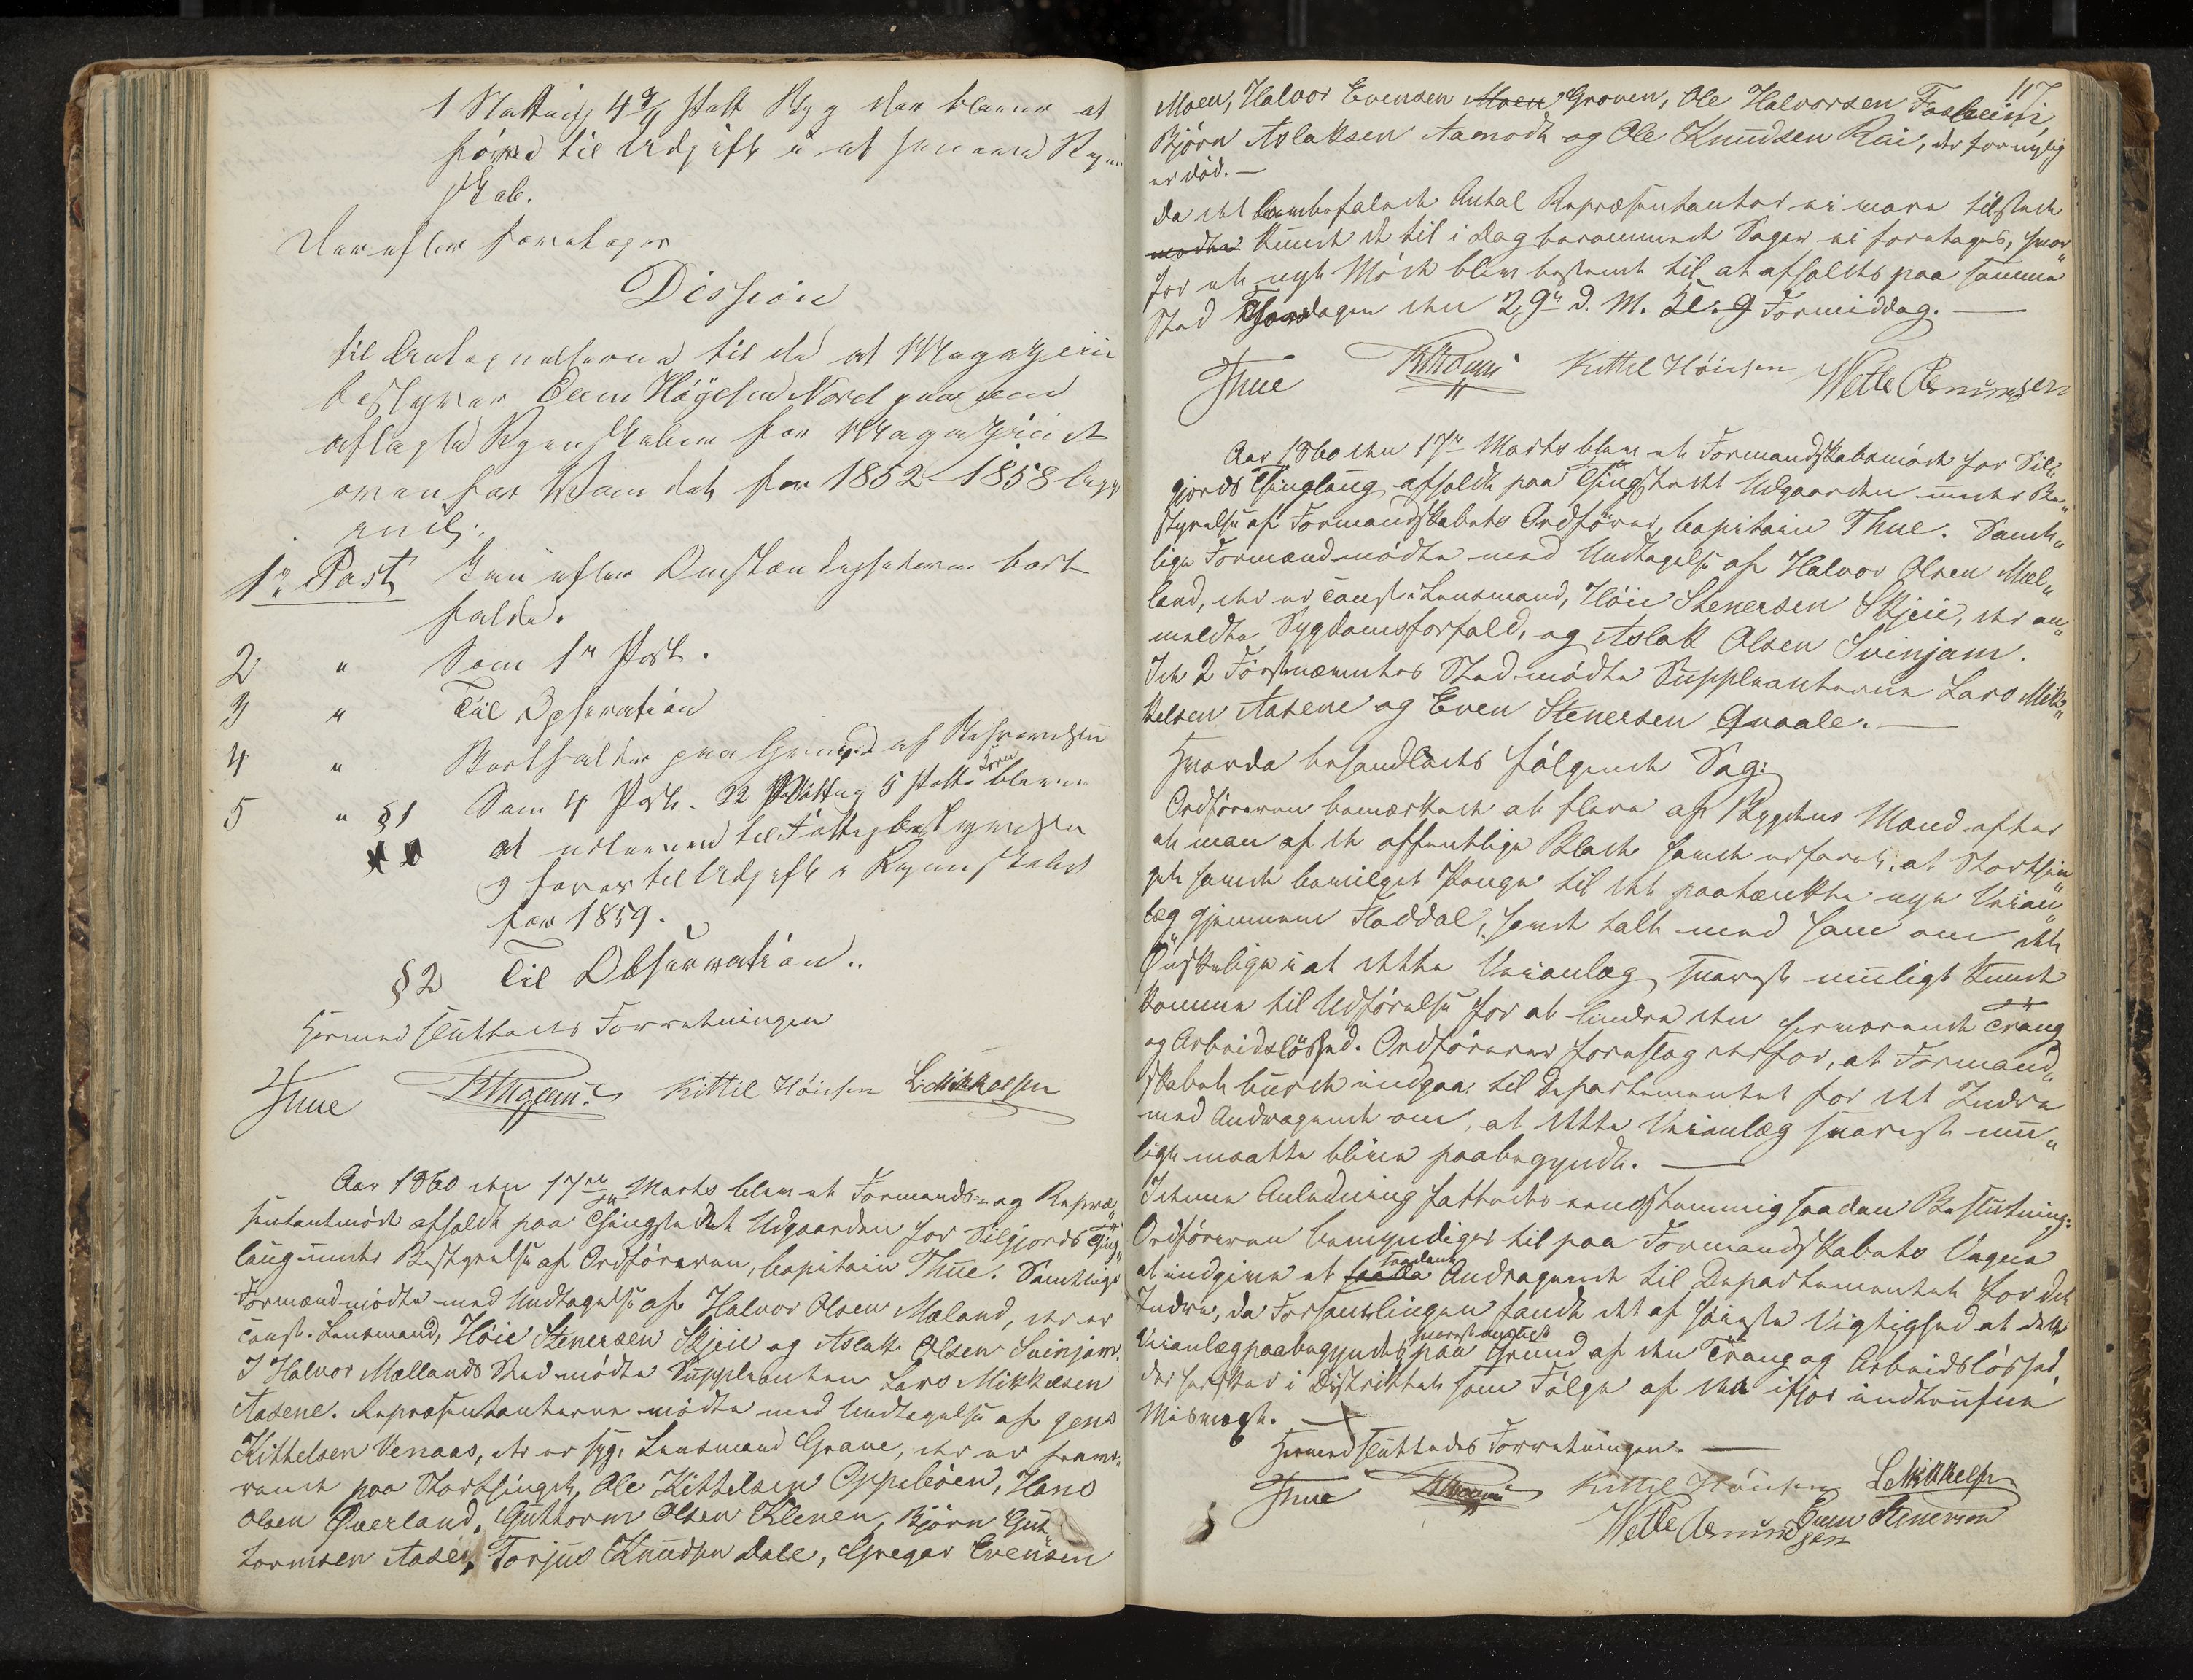 1 Skatting 4 3/4 Skatt Byg der bliver at
føres til Udgift i et senere Regn
skab.
Derefter foretoges
Dission
til Antegnelserne til de af Magazin
bestyrer Even Høyesen Nordgaarden
aflagte Regnskaber for Magazinet
ovenfor Vandet for 1852–1858 begge
incl:
1ste Post Kan efter Omstændighederne bort-
falde.
2 " Som 1ste Post.
3 " Til Observation
4 " Bortfalder paa Grund af Besvarelsen
5 " §1 Som 4 Post. 22 Skatting 5 Skatt Korn bliver
at udlevere til Fattigbestyrelsen
og føres til Udgift i Regnskabet
for 1859.
§2 Til Observation..
Hermed sluttedes Forretningen
Thue Kittil Høiesen L. Mikkelsen
Aar 1860 den 17de Marts blev et Formands- og Repræ„
sentantmøde afholdt paa Thingstedet Udgaarden for Silgjords Thing„
laug under Bestyrelse af Ordføreren, Capitain Thue. Samtlige
Formænd mødte med Undtagelse af Halvor Olsen Mæland, der er
const. Lensmand, Høie Stenersen Skjeie og Aslak Olsen Svinjom.
I Halvor Mællands Sted mødte Suppleanten Lars Mikkelsen
Aasene. Repræsentanterne mødte med Undtagelse af Jens
Kittelsen Venaas, der er syg, Lensmand Grave, der er fravæ„
rende paa Storthinget, Ole Kittelsen Oppebøen, Hans
Olsen Øverland, Guttorm Olsen Klenen, Bjørn Gut„
tormsen Aase, Torjus Knudsen Dale, Gregar Evensen
117
Moen, Halvor Evensen Moen Groven, Ole Halvorsen Fosheim,
Bjørn Aslaksen Aamodt og Ole Knudsen Rui, der fornylig
er død. —
Da det lovbefalede Antal Repræsentanter ei vare tilstede
mødte kunde de til i Dag berammede Sager ei foretages, hvor„
for et nyt Møde blev bestemt til at afholdes paa samme
Sted Thorsdagen den 29de d. M. Kl. 9 Formiddag. —
Thue Kittil Høiesen Wetle Asmundsen
Aar 1860 den 17de Marts blev et Formandskabsmøde for Sil„
gjords Thinglaug afholdt paa Thingstedet Udgaarden under Be„
styrelse af Formandskabets Ordfører, Capitain Thue. Samt„
lige Formænd mødte med Undtagelse af Halvor Olsen Mæl„
land, der er const. Lensmand, Høie Stenersen Skjeie, der an„
meldte Sygdomsforfald, og Aslak Olsen Svinjom.
I de 2 Førstnævntes Sted mødte Suppleanterne Lars Mik„
kelsen Aasene og Even Stenersen Qvaale. —
Hvorda behandledes følgende Sag:
Ordføreren bemærkede at flere af Bygdens Mænd efter
at man af de offentlige Blade havde erfaret, at Storthin„
get havde bevilget Penge til det paatænkte nye Veian„
læg gjennem Flatdal, havde talt med ham om det
Ønskelige i at dette Veianlæg snarest muligt kunde
komme til Udførelse for at lindre den herværende Trang
og Arbeidsløshed. Ordføreren foreslog derfor, at Formand„
skabet burde indgaa til Departementet for det Indre
med Andragende om, at dette Veianlæg snarest mu„
ligt maatte blive paabegyndt. —
I denne Anledning fattedes eenstemmig saadan Beslutning:
Ordføreren bemyndiges til paa Formandskabets Vegne
at indgive et saadant Andragende til Departementet for det
Indre, da Forsamlingen fandt det af høieste Vigtighed at dette
Veianlæg paabegyndtes snarest muligt paa Grund af den Trang og Arbeidsløshed,
der hersker i Distriktet som Følge af den ifjor indtrufne
Misvægt. —
Hermed sluttedes Forretningen. —
Thue Kittil Høiesen L. Mikkelsen
Wetle Asmundsen Even Stenersen